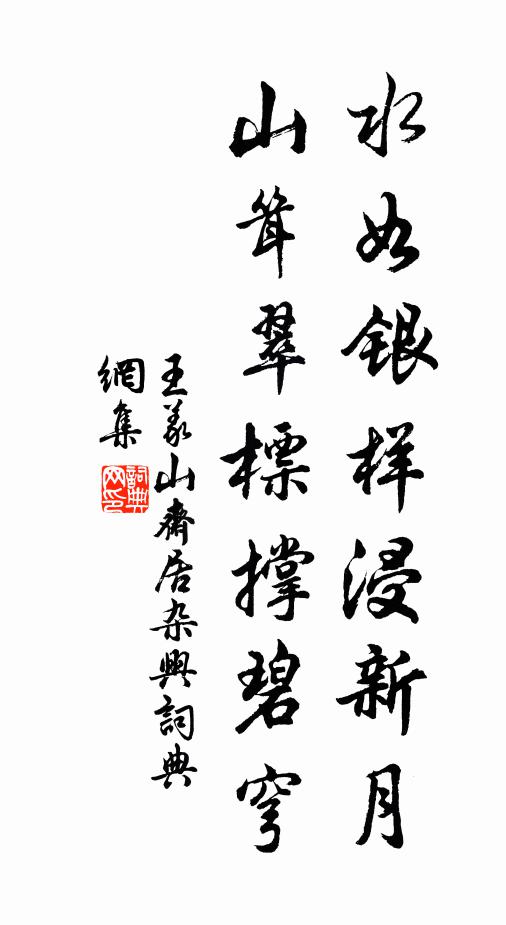 水如银样浸新月
山耸翠標撐碧穹
王义山齋居杂興詞典
網集
詞典
网印